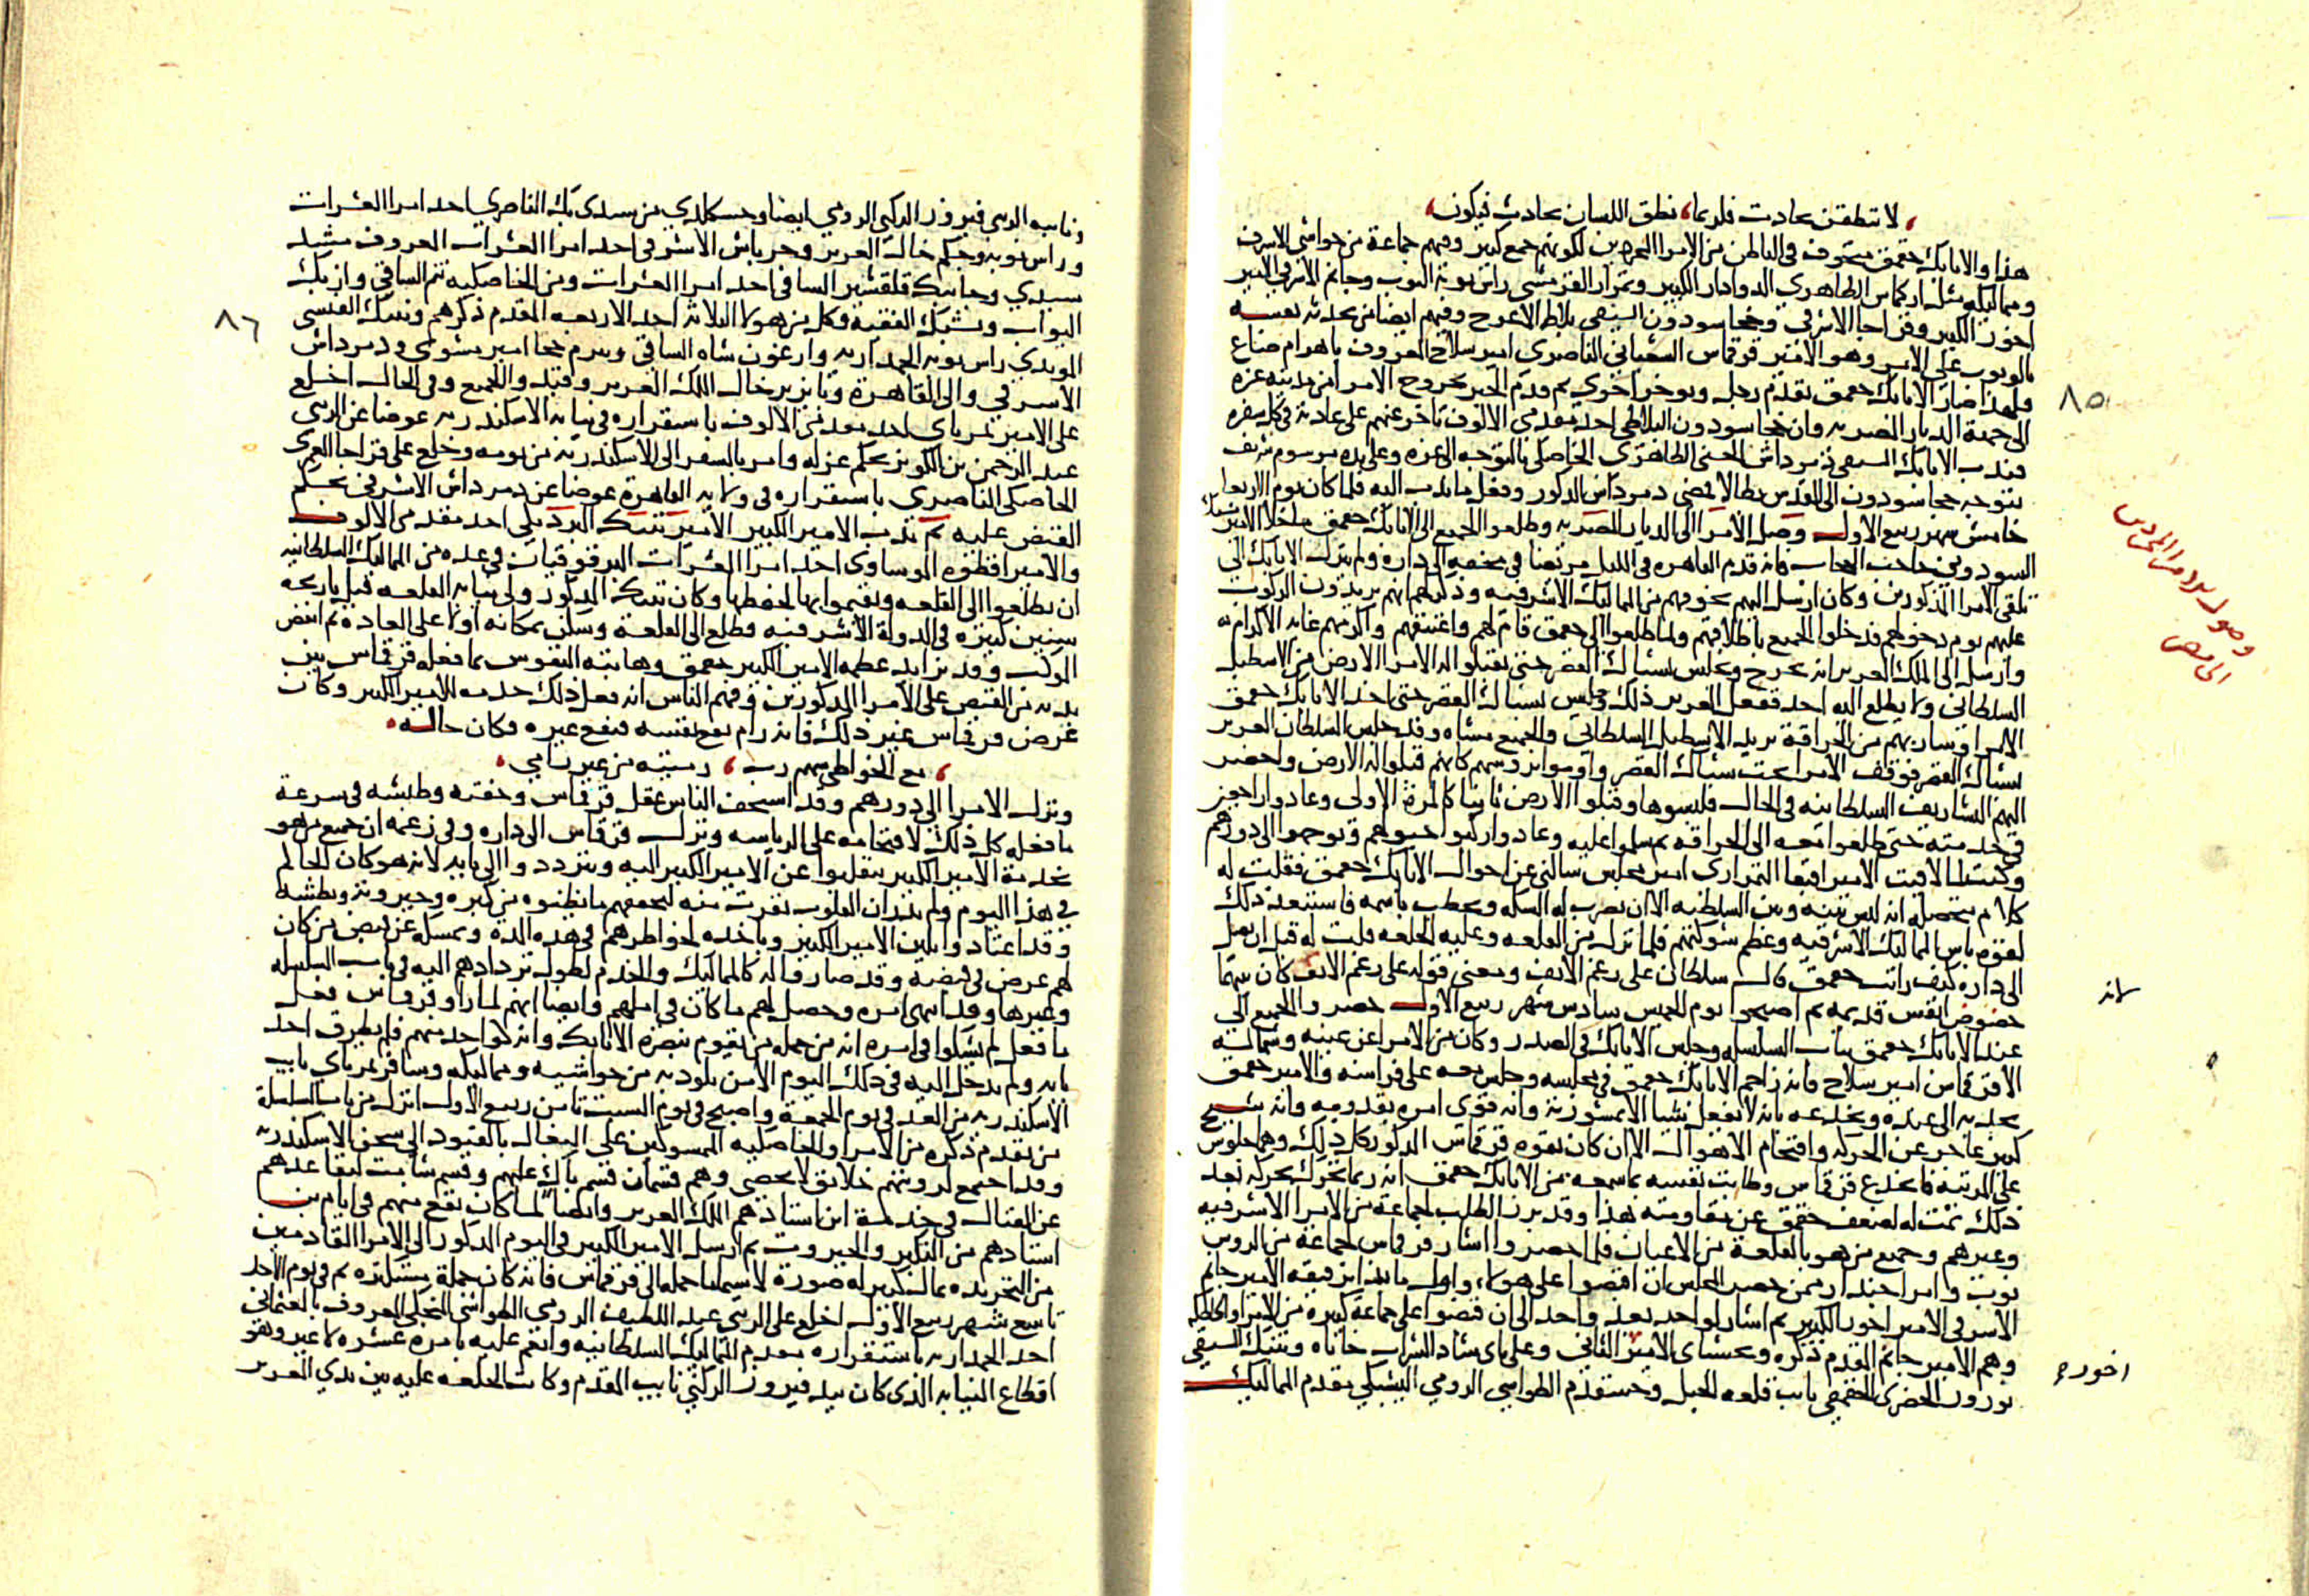 لا تنطقن بحادث فلربما، نطق اللسان بحادث فيكون،
هذا والاتابك جقمق متخوف في الباطن من الامرا المجردين لكونهم جمع كبير وفيهم جماعة من حواشي الاشرف
ومماليكه مثل اركماس الظاهري الدوادار الكبير وتمراز القرمشي راس نوبة النوب وجانم الاشرفي امير
اخور الكبير وقراجا الاشرفي وخجا سودون السيفي بلاط الاعرج وفيهم ايضا من تحدثه نفسه
بالوثوب على الامر وهو الامير قرقماس الشعباني الناصري امير سلاح المعروف باهرام ضاع
فلهذا صار الاتابك جقمق يقدم رجلا ويوخر اخرى ثم قدم الخبر بخروج الامرا من مدينة غزة
الى جهة الديار المصرية وان خجا سودون البلاطي احد مقدمي الالوف تاخر عنهم على عادته في كل سفره
فندب الاتابك السيفي دمرداش الحسني الظاهري الخاصكي بالتوجه الى غزه وعلى يده مرسوم شريف
بتوجه خجا سودون الى القدس بطالا فمضى دمرداش المذكور وفعل ما ندب اليه فلما كان يوم الاربعا
خامس شهر ربيع الاول وصل الامرا الى الديار المصرية وطلعوا الجميع الى الاتابك جقمق ما خلا الامير يشبك
السودوني حاجب الحجاب فانه قدم القاهره في الليل مريضا في محفه الى داره ولم ينزل الاتابك الى
تلقي الامرا المذكورين وكان ارسل اليهم يخوفهم من المماليك الاشرفيه وذكر لهم انهم يريدون الركوب
عليهم يوم دخولهم فدخلوا الجميع باطلابهم ولما طلعوا الى جقمق قام لهم واعتنقهم واكرمهم غاية الاكرام
وارسل الى الملك العزيز انه يخرج ويجلس بشباك القصر حتى يقبلوا له الامرا الارض من الاسطبل
السلطاني ولا يطلع اليه احد ففعل العزيز ذلك وجلس بشباك القصر حتى اخذ الاتابك جقمق
الامرا وسار بهم من الحراقة يريد الاسطبل السلطاني والجميع مشاه وقد جلس السلطان العزيز
بشباك القصر فوقف الامرا تحت شباك القصر واوموا بروسهم كانهم قبلوا له الارض واحضر
اليهم التشاريف السلطانية في الحال فلبسوها وقبلوا الارض ثانيا كالمرة الاولى وعادوا راجعين
في خدمته حتى طلعوا معه الى الحراقه ثم سلموا عليه وعادوا ركبوا خيولهم وتوجهوا الى دورهم
وكنت لما لاقيت الامير اقبغا التمرازي امير مجلس سالني عن احوال الاتابك جقمق فقلت له
كلام محصله انه ليس بينه وبين السلطنه الا ان تضرب له السكه ويخطب باسمه فاستبعد ذلك
لقوة باس المماليك الاشرفيه وعظم شوكتهم فلما نزل من القلعه وعليه الخلعه قلت له قبل ان يصل
الى داره كيف رايت جقمق قال سلطان على رغم الانف ومعنى قوله على رغم الانف كان بينهما
حضوض انفس قديمه ثم اصبحوا يوم الخميس سادس شهر ربيع الاول حضروا الجميع الى
عند الاتابك جقمق بباب السلسله وجلس الاتابك في الصدر وكان من الامرا عن يمينه وشماله
الا قرقماس امير سلاح فانه زاحم الاتابك جقمق في مجلسه وجلس معه على فراشه والامير جقمق
يجذبه الى عنده ويخدعه بانه لا يفعل شيا الا بمشورته وانه قوى امره بقدومه وانه شيخ
كبير عاجز عن الحركه واقتحام الاهوال الا ان كان بقوه قرقماس المذكور كل ذلك وهما جلوس
على المرتبه فانخدع قرقماس وطابت نفسه بما سمعه من الاتابك جقمق انه ربما تحرك بحركه بعد
ذلك تمت له لضعف جقمق عن مقاومته هذا وقد برز الطلب لجماعة من الامرا الاشرفيه
وغيرهم وجميع من هو بالقلعة من الاعيان فلما حضروا اشار قرقماس لجماعة من الروس
نوب وامرا جندار ممن حضر المجلس ان اقبضوا على هولا واول ما بدا برفيقه الامير جانم
الاشرفي الامير اخور الكبير ثم اشار لواحد بعد واحد الى ان قبضوا على جماعة كبيره من الامرا والخاصكيه
وهم الامير جانم المقدم ذكره ويخشباي الامير الثاني وعلى باي شاد الشراب خاناه وتنبك السيفي
نوروز الخضري الجقمقي نايب قلعه الجبل وخشقدم الطواشي الرومي اليشبكي مقدم المماليك
وصول الامرا المجردين
الى مصر
٨٥
لانه
اخور
ونايبه الرومي فيروز الركني الرومي ايضا وجكم خال العزيز وجرباش الاشرفي احد امرا العشرات
٨٦
البواب ويشبك الفقيه وكل من هولا الثلاثه احد الاربعه المقدم ذكرهم وتنبك الفيسي
المويدي راس نوبه الجمداريه وارغون شاه الساقي وبيرم خجا امير مشوي ودمرداش
الاشرفي والى القاهرة وبايزير خال الملك العزيز وقيد والجميع وفي الحال اخلع
على الامير تمرباي احد مقدمي الالوف باستقراره في نيابة الاسكندريه عوضا عن الزيني
عبد الرحمن بن الكويز بحكم عزله وامر بالسفر الى الاسكندريه من يومه وخلع على قراجا العمري
الخاصكي الناصري باستقراره في ولاية القاهرة عوضا عن دمرداش الاشرفي بحكم
القبض عليه ثم ندب الامير الكبير الامير تنبك البردبكي احد مقدمي الالوف
والامير اقطوه الموساوي احد امرا العشرات البرقوقيان في عده من المماليك السلطانيه
ان يطلعوا الى القلعه ويقيموا بها لحفظها وكان تنبك المذكور ولي نيابه القلعه قبل تاريخه
سنين كثيره في الدولة الاشرفيه فطلع الى القلعة وسكن بمكانه اولا على العاده ثم انفض
الموكب وقد تزايد عظمه الامير الكبير جقمق وهابته النفوس بما فعله قرقماس بين
يديه من القبض على الامرا المذكورين وفهم الناس انه فعل ذلك خدمه للامير الكبير وكان
غرض قرقماس غير ذلك فانه رام نفع نفسه فنفع غيره فكان حاله
، مع الخواطي سهم رب ، رمية من غير رامي ،
ونزل الامرا الى دورهم وقد استخف الناس عقل قرقماس وخفته وطيشه في سرعة
ما فعله كل ذلك لاقتحامه على الرياسه ونزل قرقماس الى داره وفي زعمه ان جميع من هو
بخدمة الامير الكبير ينقلبوا عن الامير الكبير اليه ويترددوا الى بابه لانه هو كان الحاكم
في هذا اليوم ولم يدر ان القلوب نفرت منه لتحققهم ما يظنوه من كبره وجبروته وبطشه
وقد اعتادوا بلين الامير الكبير وباخذه لخواطرهم في هذه المدة وتمسكه عن قبض من كان
لهم غرض في قبضه وقد صاروا له كالمماليك والخدم لطول تردادهم اليه في باب السلسله
وغيرها وقد انتهى امره وحصل لهم ما كان في املهم وايضا انهم لما راوا قرقماس فعل
ما فعل لم يشكوا في امره انه من جمله من يقوم بنصرة الاتابك وانه كواحد منهم فلم يطرق احد
بابه ولم يدخل اليه في ذلك اليوم الا من يلوذ به من حواشيه ومماليكه وسافر تمرباي نايب
الاسكندريه من الغد في يوم الجمعة واصبح في يوم السبت ثامن ربيع الاول انزل من باب السلسلة
من تقدم ذكره من الامرا والخاصكيه الممسوكين على البغال بالقيود الى سجن الاسكندريه
وقد اجتمع لرويتهم خلايق لا تحصى وهم قسمان قسم باك عليهم وقسم شامت لتقاعدهم
عن القتال في خدمة ابن استاذهم الملك العزيز وايضا لما كان يقع منهم في ايام
استاذهم من التكبر والجبروت ثم ارسل الامير الكبير في اليوم المذكور الى الامرا القادمين
من التجريده بمال كبير له صورة لا سيما ما حمله الى قرقماس فانه كان جملة مستكثره ثم في يوم الاحد
تاسع شهر ربيع الاول اخلع على الزيني عبد اللطيف الرومي الطواشي المنجكي المعروف بالعثماني
احد الجمداريه باستقراره مقدم المماليك السلطانيه وانعم عليه بامره عشره لا غير وهو
اقطاع النيابه الذي كان بيد فيروز الركني نايب المقدم وكانت الخلعه عليه بين يدي العزيز